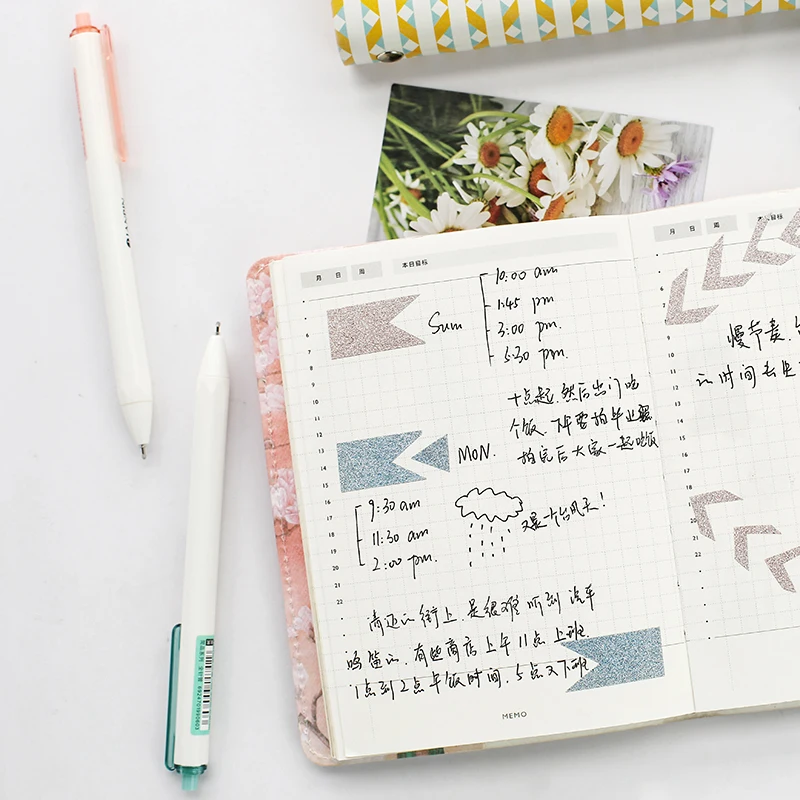 月 日 周 本日目标
Sun
10:00 am
1:45 pm
3:00 pm.
5:30 pm.
十点起.然后出门吃
个饭.下午要拍毕业照
拍完后大家一起吃饭
MON.
9:30 am
11:30 am
2:00 pm.
又是一个台风天!
清迈的街上.是很难听到汽车
鸣笛的.有些商店上午11点上班.
1点到2点午饭时间.5点又下班
MEMO
6
7
8
9
10
11
12
13
14
15
16
17
18
19
20
21
22
月 日 周 本日目标
慢节奏.
的时间去